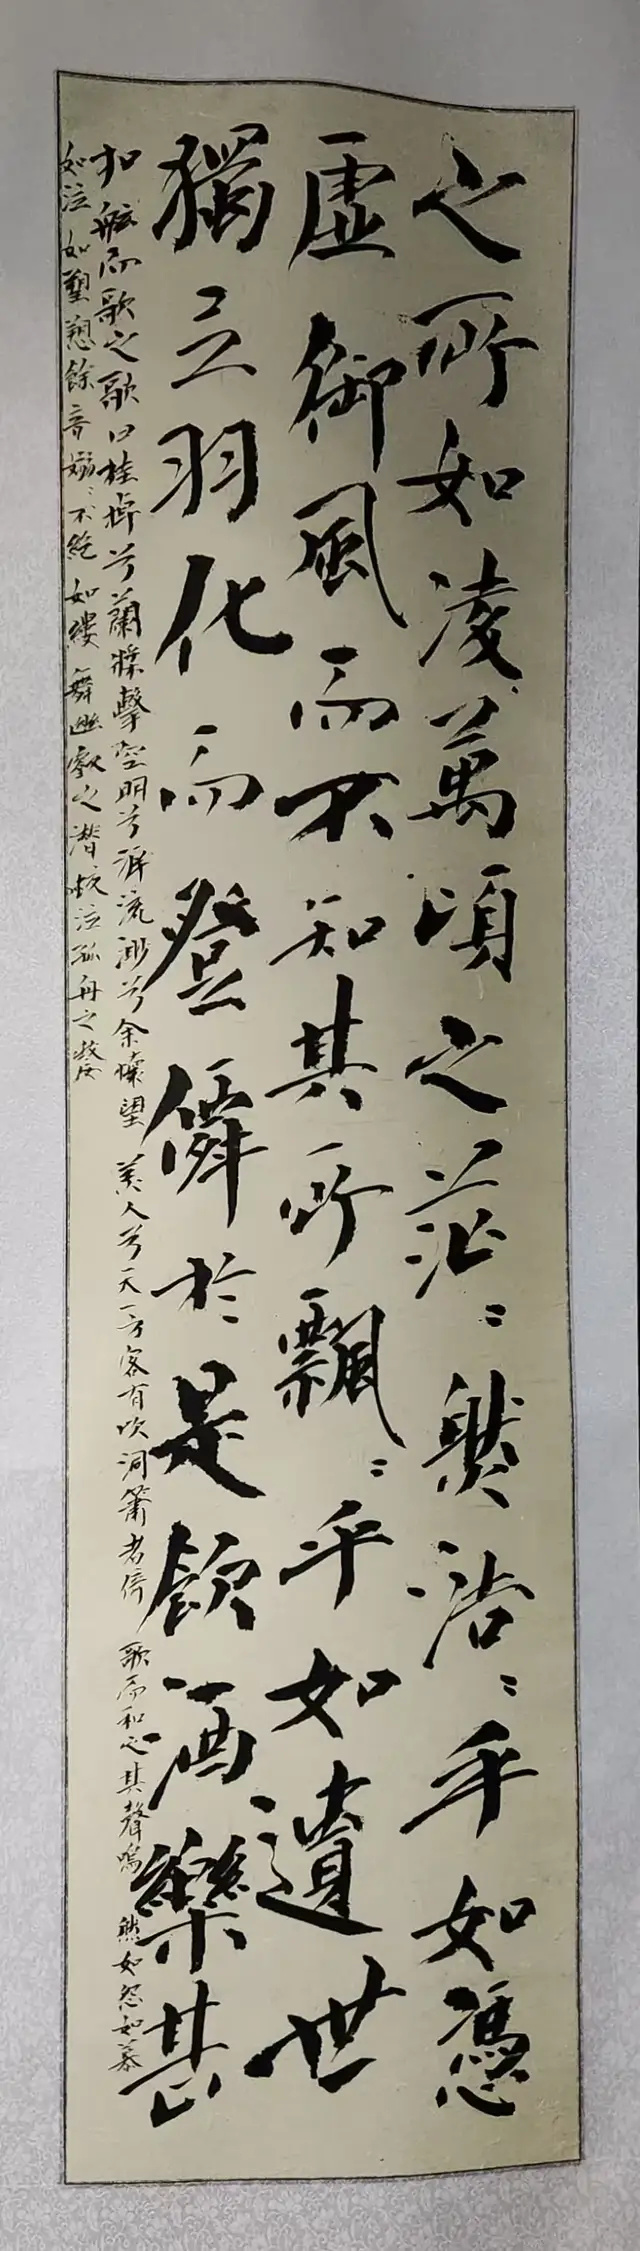 之所如凌萬頃之茫〻然浩〻乎如憑
虛御風而不知其所飄〻乎如遺世
獨立羽化而登僊於是飲酒樂甚
扣舷而歌之歌曰桂棹兮蘭槳擊空明兮泝流渺兮余懷望美人兮天一方客有吹洞簫者倚歌而和之其聲嗚然如怨如慕
如泣如塑愬餘音嫋〻不絶如縷舞幽壑之潛蛟泣孤舟之嫠